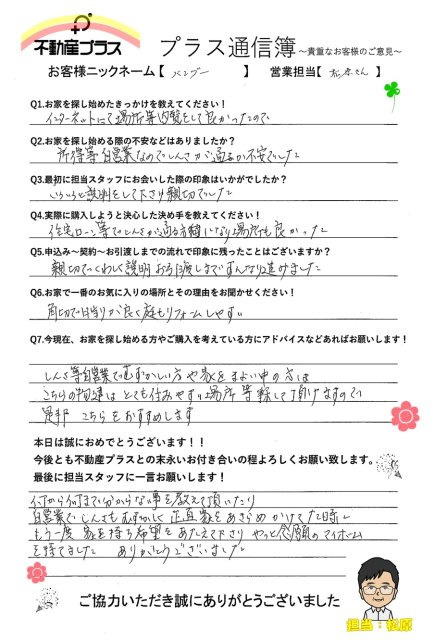 不動産プラス
プラス通信簿 ～貴重なお客様のご意見～
お客様ニックネーム【 バンブー 】 営業担当【 松原さん 】
Q1.お家を探し始めたきっかけを教えてください！
インターネットにて場所等内覧をして良かったので
Q2.お家を探し始める際の不安などはありましたか？
所得等自営業なのでしんさが通るか不安でした
Q3.最初に担当スタッフにお会いした際の印象はいかがでしたか？
いろいろと説明をして下さり親切でした
Q4.実際に購入しようと決心した決め手を教えてください！
住宅ローン等でしんさが通る方向になり場所も良かった
Q5.申込み～契約～お引渡しまでの流れで印象に残ったことはございますか？
親切でくわしく説明 お引渡しまですんなり進めました
Q6.お家で一番のお気に入りの場所とその理由をお聞かせください！
角地で日当りが良く庭もリフォームしやすい
Q7.今現在、お家を探し始める方やご購入を考えている方にアドバイスなどあればお願いします！
しんさ等自営業でむずかしい方や家をまよい中の方は
こちらの物件は とても住みやすい場所 等 頂けますので
是非 こちらをおすすめします
本日は誠におめでとうございます！！
今後とも不動産プラスとの末永いお付き合いの程よろしくお願い致します。
最後に担当スタッフに一言お願いします！
何から何まで分からない事を教えて頂いたり
自営業でしんさもむずかしく 正直家をあきらめかけてた時に
もう一度 家を持ち希望をあたえて下さり やっと念願のマイホーム
を持てました ありがとうございました
ご協力いただき誠にありがとうございました
担当：松原